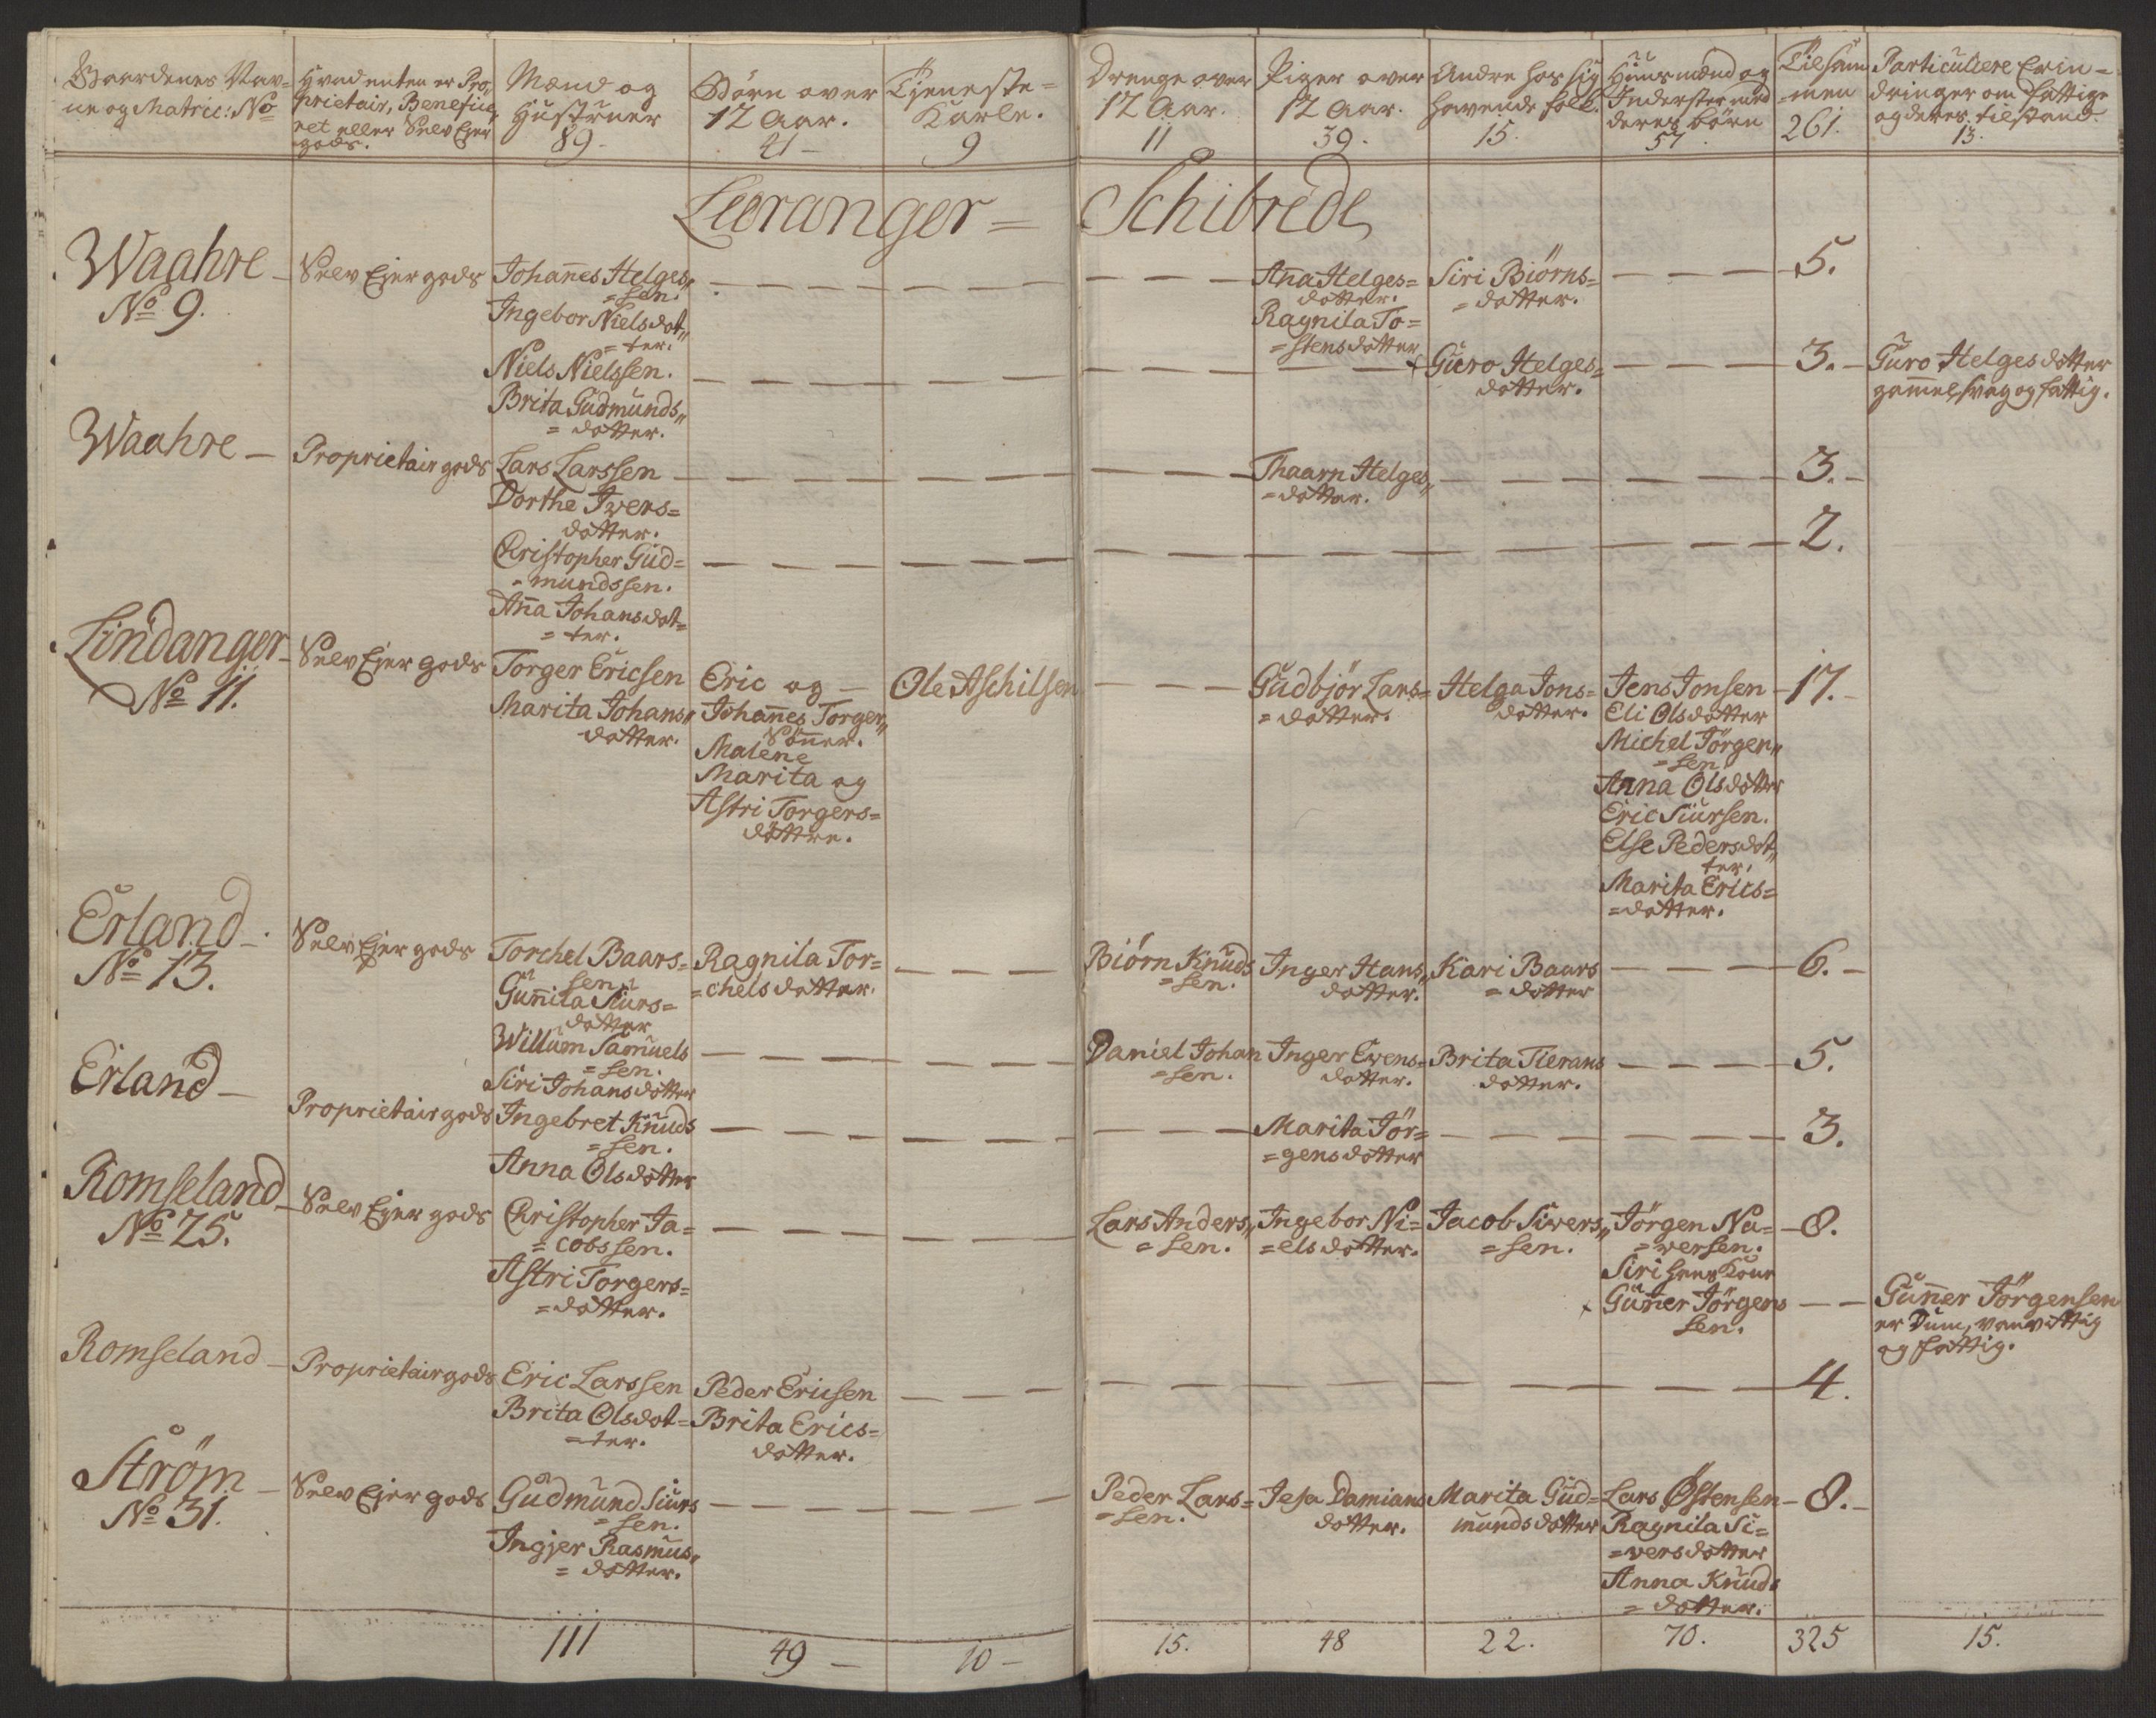 Gaardenes Nav-
ne og Matric: No
Hvad enten er Pro-
prietair, Benefice-
ret eller Selv Ejer
gods.
Mænd og
Hustruer
89-
Børn over
12 Aar.
41-
Tjeneste-
Karle.
9
Drenge over
12 Aar.
11
Piger over
12 Aar.
39.
Andre hos sig
havende folk.
15.
Huusmænd og
Inderster med
deres børn
57.
Tilsam
-men
261.
Particuliere Erin-
dringer om fattige
og deres tilstand.
13.
Leeranger= Schibrede
Waahre-
No 9.
Selv Ejer gods
Johañes Helges„
=sen.
Ingebor Nielsdot„
=ter.
Aña Helges=
dotter.
Ragnila To=
=stensdotter
Siri Biörns=
=dotter.
5.
Niels Nielssen.
Brita Gudmunds„
=dotter.
Guro Helges=
dotter.
3.-
Guro Helgesdotter
gammel, svag og fattig.
Waahre-
Proprietair gods
Lars Larssen
Dorthe Iwers=
dotter.
Thaarn Helges„
=dotter.
3.-
Christopher Gud=
=mundssen.
Aña Johansdot=
=ter.
2.
Lindanger-
No 11.
Selv Ejer gods
Torger Ericsen
Marita Johans„
dotter.
Eric og-
Johañes Torger„
Söñer.
Malene
Marita og
Astri Torgers=
döttre.
Ole Aschilsen
Gudbjör Lars=
=dotter.
Helga Jons=
dotter.
Jens Jonsen
Eli Olsdotter
Michel Jörgen„
=sen.
Anna Olsdotter
Eric Siursen.
Else Pedersdot„
ter.
Marita Erics=
=dotter.
17.-
Erland-
No 13.
Selv Ejer gods
Torchel Baars=
sen.
Guñila Siurs=
dotter
Ragnila Tor=
=chelsdotter.
Biörn Knuds
=sen.
Inger Hans„
dotter.
Kari Baars
=dotter
6.-
Willum Samuels
=sen.
Siri Johansdotter
Daniel Johan
=sen.
Inger Ewens=
dotter.
Brita Tierans
dotter.
5.
Erland-
Proprietair gods
Ingebret Knuds
=sen.
Anna Olsdotter
Marita Jör=
=gensdotter
3.
Romseland-
No 25.
Selv Ejer gods
Christopher Ja=
=cobssen.
Astri Torgers=
=dotter.
Lars Anders„
=sen.
Ingebor Ni=
=elsdotter.
Jacob Sivers„
=sen.
Jörgen Na=
=versen.
Siri hans Kone
Guñer Jörgens
sen.
8.
Guñer Jörgensen
er Dum, vanvittig
og fattig.
Romseland-
Proprietair gods
Eric Larssen
Brita Olsdot=
=ter.
Peder Ericsen
Brita Erics=
dotter.
4.
Ström-
No 31.
Selv Ejer gods
Gudmund Siurs
=sen.
Ingjer Rasmus„
=dotter.
Peder Lars=
=sen.
Jesa Damians
dotter.
Marita Gud=
mundsdotter
Lars Østensen
Ragnila Si=
=versdotter
Anna Knuds
=dotter.
8.-
111
49-
10-
15.
48
22.
70.
325
15.